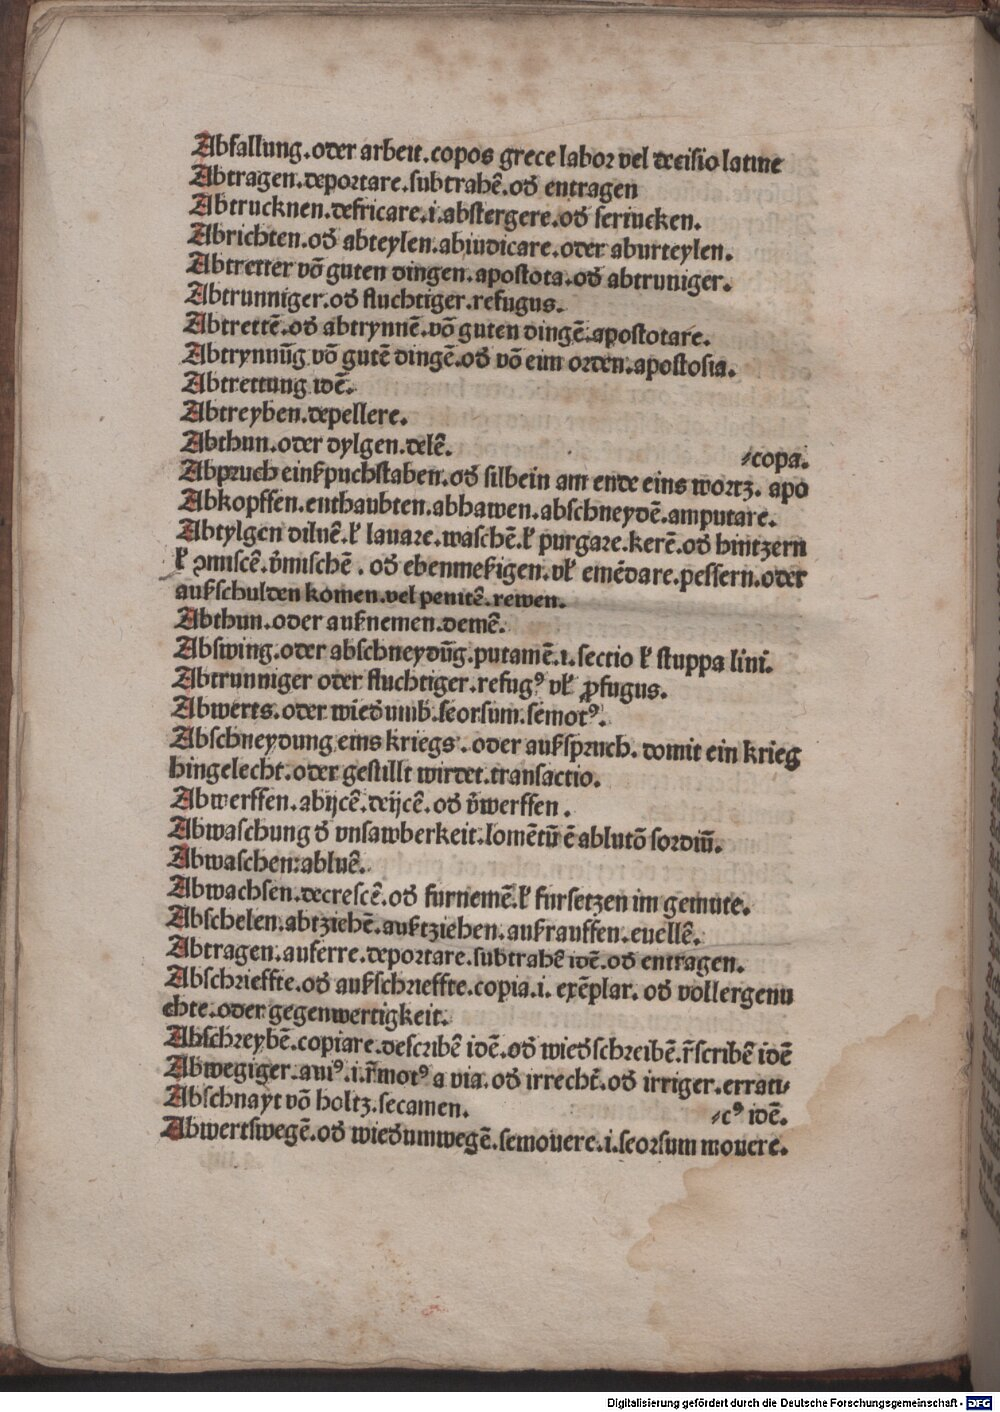 Abfallung.oder arbeit.copos grece labor vel decisio latine
Abtragen.deportare.subtrahē.od̕ entragen
Abtrucknen.defricare.i.abstergere.od̕ serrucken.
Abrichten.od̕ abteylen.abiudicare.oder aburteylen.
Abtretter vō guten dingen.apostota.od̕ abtruniger.
Abtrunniger.od̕ fluchtiger.refugus.
Abtrettē.od̕ abtrynnē.vō guten dingē.apostotare.
Abtrynnūg vō gutē dingē.od̕ vō eim orden.apostosia.
Abtrettung idē.
Abtreyben.depellere.
Abthun.oder dylgen.delē.
⸗copa.
Abpruch einß puchstaben.od̕ silbein am ende eins wortz. apo
Abkopffen.enthaubten.abhawen.abschneydē.amputare.
Abtylgen diluē.ł lauare.waschē.ł purgare.kerē.od̕ hintzern
ł ꝯmiscē.v̄mischē. od̕ ebenmeßigen.vł emēdare.pessern.oder
außschulden komen.vel penitē.rewen.
Abthun.oder aufnemen.demē.
Abswing.oder abschneydūg.putamē.i.sectio ł stuppa lini.
Abtrunniger oder fluchtiger.refugꝰ vł ꝓfugus.
Abwerts.oder wied̕umb.seorsum.semotꝰ.
Abschneydung eins kriegs.oder außspruch. domit ein krieg
hingelecht.oder gestillt wirdet.transactio.
Abwerffen.abijcē.deijcē.od̕ v̄werffen.
Abwaschung d̕ vnsawberkeit.lomētū ē ablutō sordiū.
Abwaschen:abluē.
Abwachsen.decrescē.od̕ furnemē.ł fursetzen im gemute.
Abschelen.abtziehē.außtziehen.außrauffen.euellē.
Abtragen.auferre.deportare.subtrahē idē.od̕ entragen.
Abschrieffte.od̕ außschrieffte.copia.i. exēplar. od̕ vollergenu
chte.oder gegenwertigkeit.
Abschreybē.copiare.describē idē.od̕ wied̕schreibē.r̄scribē idē
Abwegiger.auiꝰ.i.r̄motꝰ a via.od̕ irrecht.od̕ irriger.errati⸗
Abschnayt vō holtz.secamen.
⸗cꝰ idē.
Abwertswegē.od̕ wied̕umwegē.semouere.i.seorsum mouere.
Digitalisierung gefördert durch die Deutsche Forschungsgemeinschaft - DFG